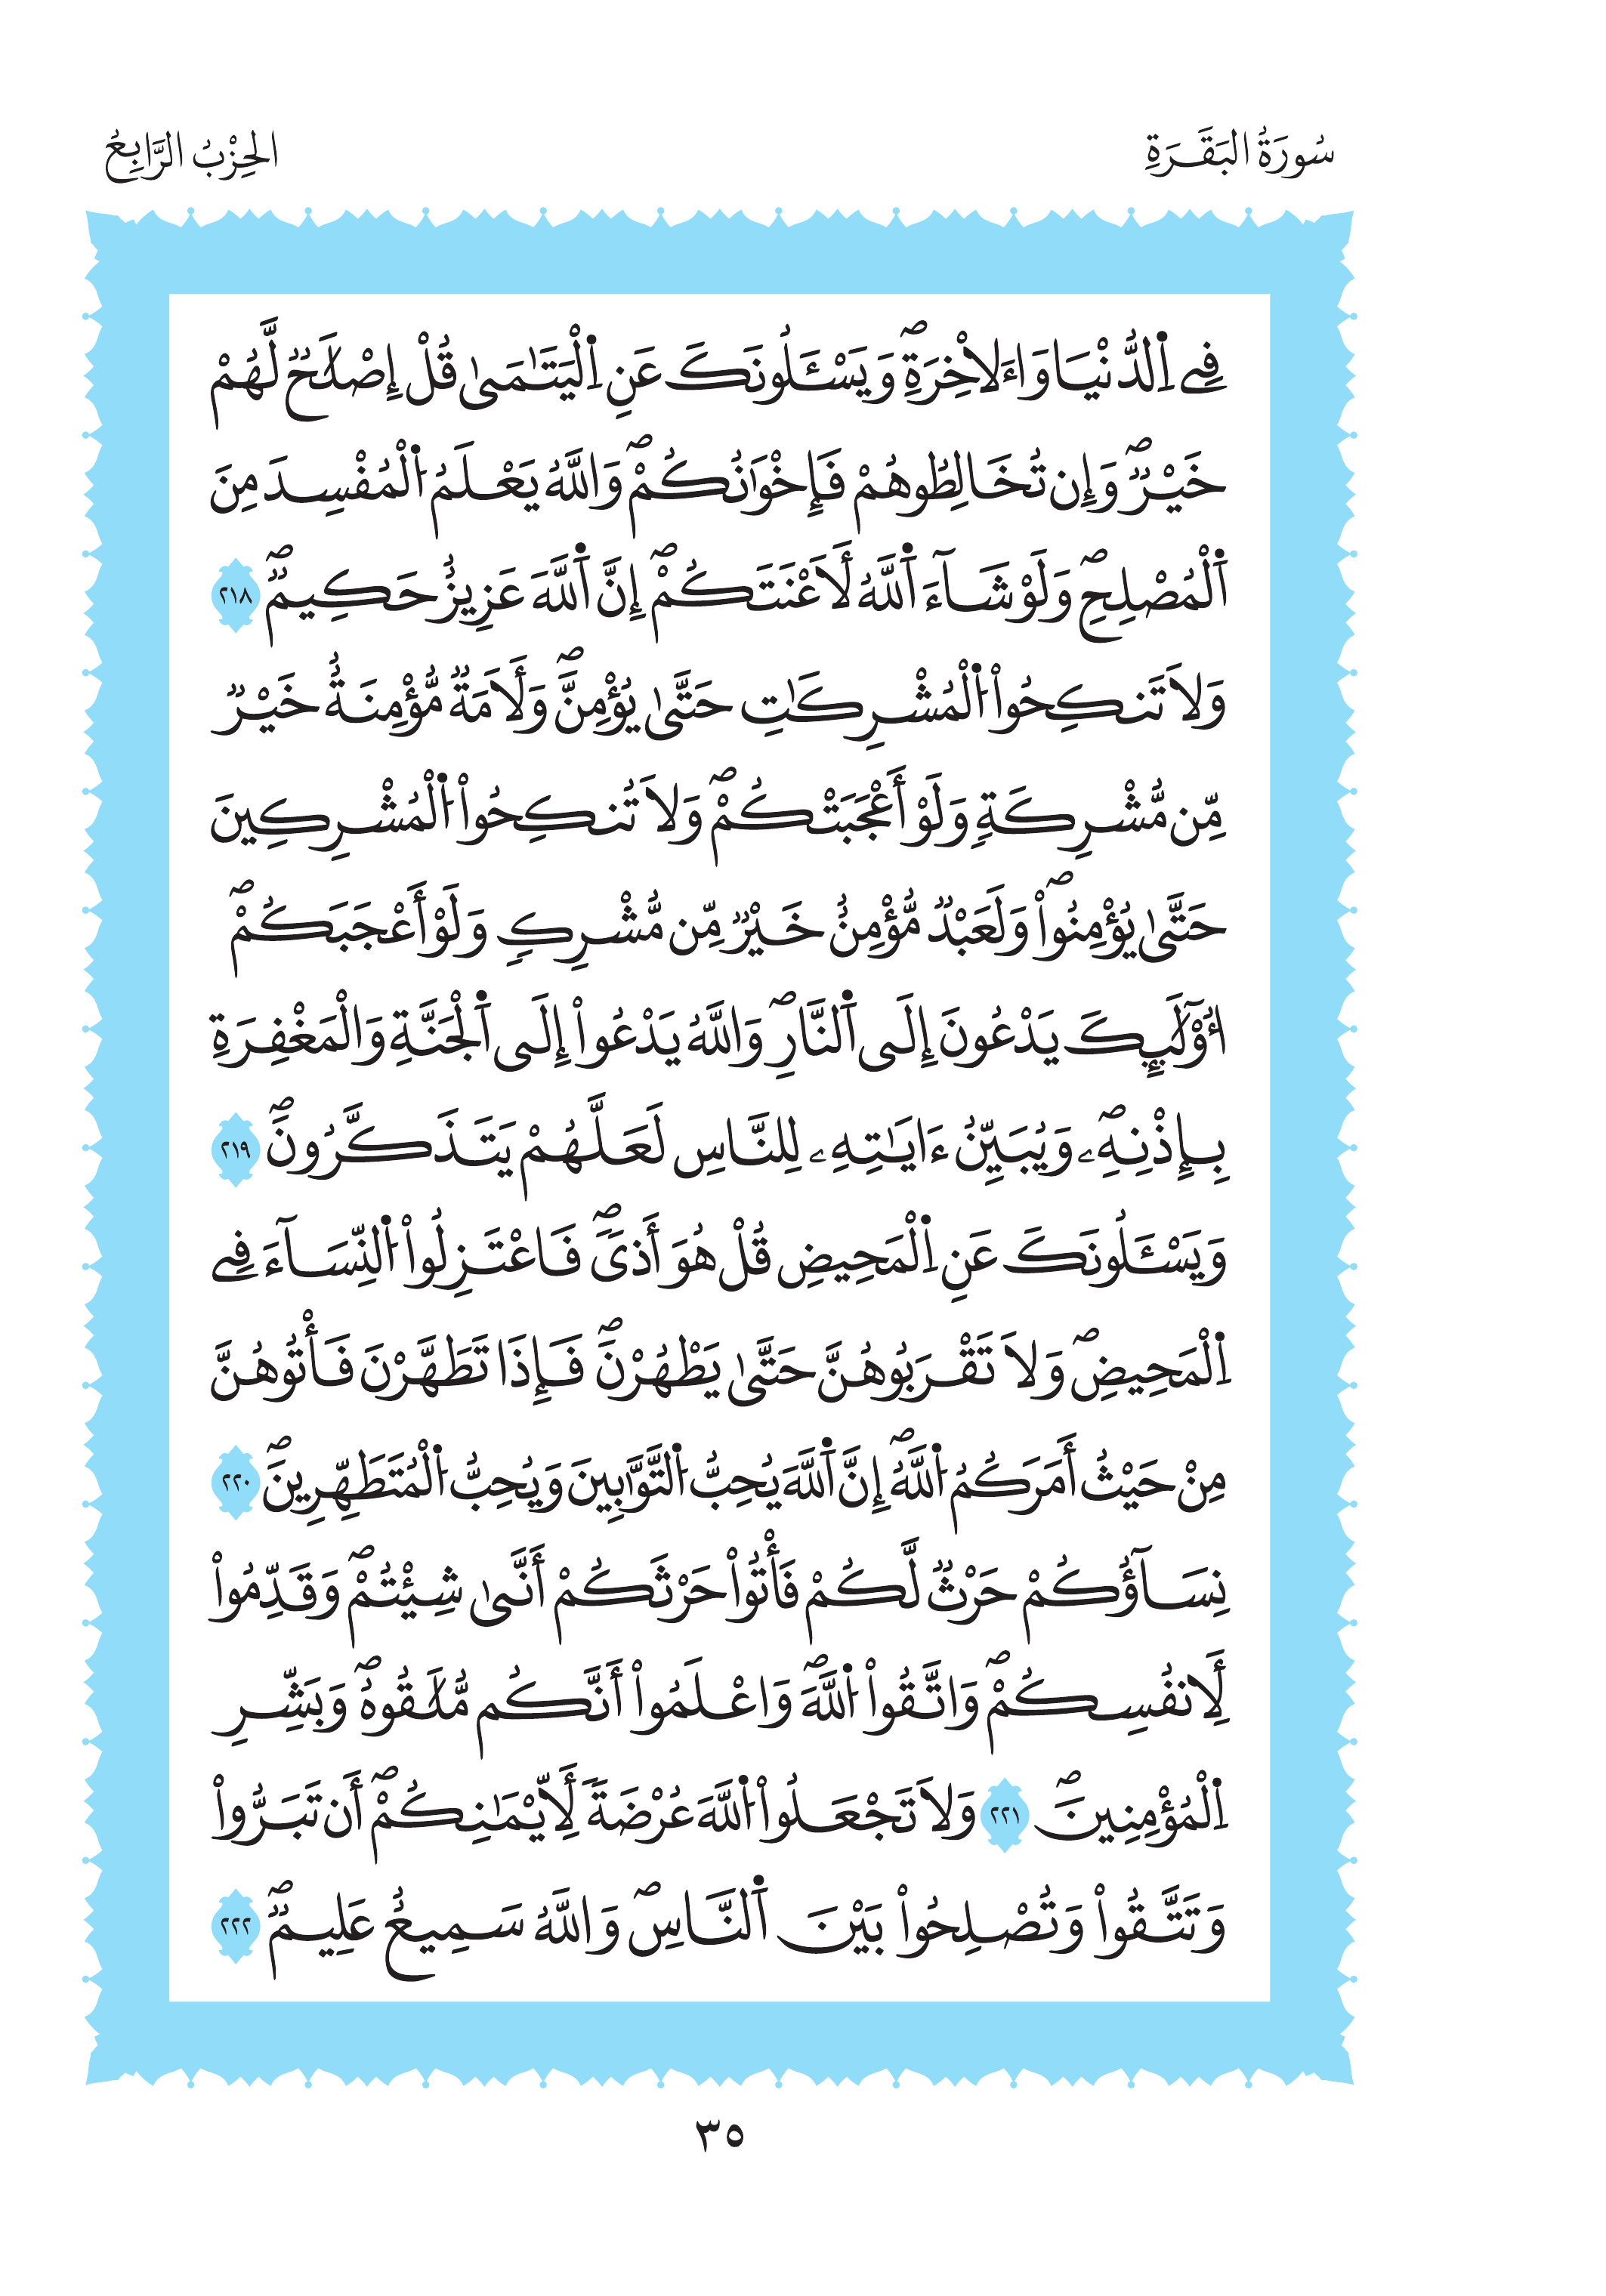 سُورَةُ البَقَرَةِ
الحِزْبُ الرَّابِعُ
فِے اِ۬لدُّنْي۪ا وَا۬لَاخِرَةِۖ وَيَسْـَٔلُونَكَ عَنِ اِ۬لْيَتَٰمَىٰ قُلْ إِصْلَٰحٞ لَّهُمْ
خَيْرٞۖ وَإِن تُخَالِطُوهُمْ فَإِخْوَٰنُكُمْۖ وَاللَّهُ يَعْلَمُ اُ۬لْمُفْسِدَ مِنَ
اَ۬لْمُصْلِحِۖ وَلَوْ شَآءَ اَ۬للَّهُ لَأَعْنَتَكُمْۖ إِنَّ اَ۬للَّهَ عَزِيزٌ حَكِيمٞۖ ٢١٨
وَلَا تَنكِحُواْ اُ۬لْمُشْرِكَٰتِ حَتَّىٰ يُؤْمِنَّۖ وَلَأَمَةٞ مُّؤْمِنَةٌ خَيْرٞ
مِّن مُّشْرِكَةٖ وَلَوْ أَعْجَبَتْكُمْۖ وَلَا تُنكِحُواْ اُ۬لْمُشْرِكِينَ
حَتَّىٰ يُؤْمِنُواْۖ وَلَعَبْدٞ مُّؤْمِنٌ خَيْرٞ مِّن مُّشْرِكٖ وَلَوْ أَعْجَبَكُمْۖ
أُوْلَٰٓئِكَ يَدْعُونَ إِلَى اَ۬لنَّارِۖ وَاللَّهُ يَدْعُواْ إِلَى اَ۬لْجَنَّةِ وَالْمَغْفِرَةِ
بِإِذْنِهِۦۖ وَيُبَيِّنُ ءَايَٰتِهِۦ لِلنَّاسِ لَعَلَّهُمْ يَتَذَكَّرُونَۖ ٢١٩
وَيَسْـَٔلُونَكَ عَنِ اِ۬لْمَحِيضِ قُلْ هُوَ أَذىٗۖ فَاعْتَزِلُواْ اُ۬لنِّسَآءَ فِے
اِ۬لْمَحِيضِۖ وَلَا تَقْرَبُوهُنَّ حَتَّىٰ يَطْهُرْنَۖ فَإِذَا تَطَهَّرْنَ فَأْتُوهُنَّ
مِنْ حَيْثُ أَمَرَكُمُ اُ۬للَّهُۖ إِنَّ اَ۬للَّهَ يُحِبُّ اُ۬لتَّوَّٰبِينَ وَيُحِبُّ اُ۬لْمُتَطَهِّرِينَۖ ٢٢٠
نِسَآؤُكُمْ حَرْثٞ لَّكُمْ فَأْتُواْ حَرْثَكُمْ أَنَّىٰ شِئْتُمْۖ وَقَدِّمُواْ
لِأَنفُسِكُمْۖ وَاتَّقُواْ اُ۬للَّهَۖ وَاعْلَمُواْ أَنَّكُم مُّلَٰقُوهُۖ وَبَشِّرِ
اِ۬لْمُؤْمِنِينَۖ ٢٢١ وَلَا تَجْعَلُواْ اُ۬للَّهَ عُرْضَةٗ لِّأَيْمَٰنِكُمْۖ أَن تَبَرُّواْ
وَتَتَّقُواْ وَتُصْلِحُواْ بَيْنَ اَ۬لنَّاسِۖ وَاللَّهُ سَمِيعٌ عَلِيمٞۖ ٢٢٢
٣٥